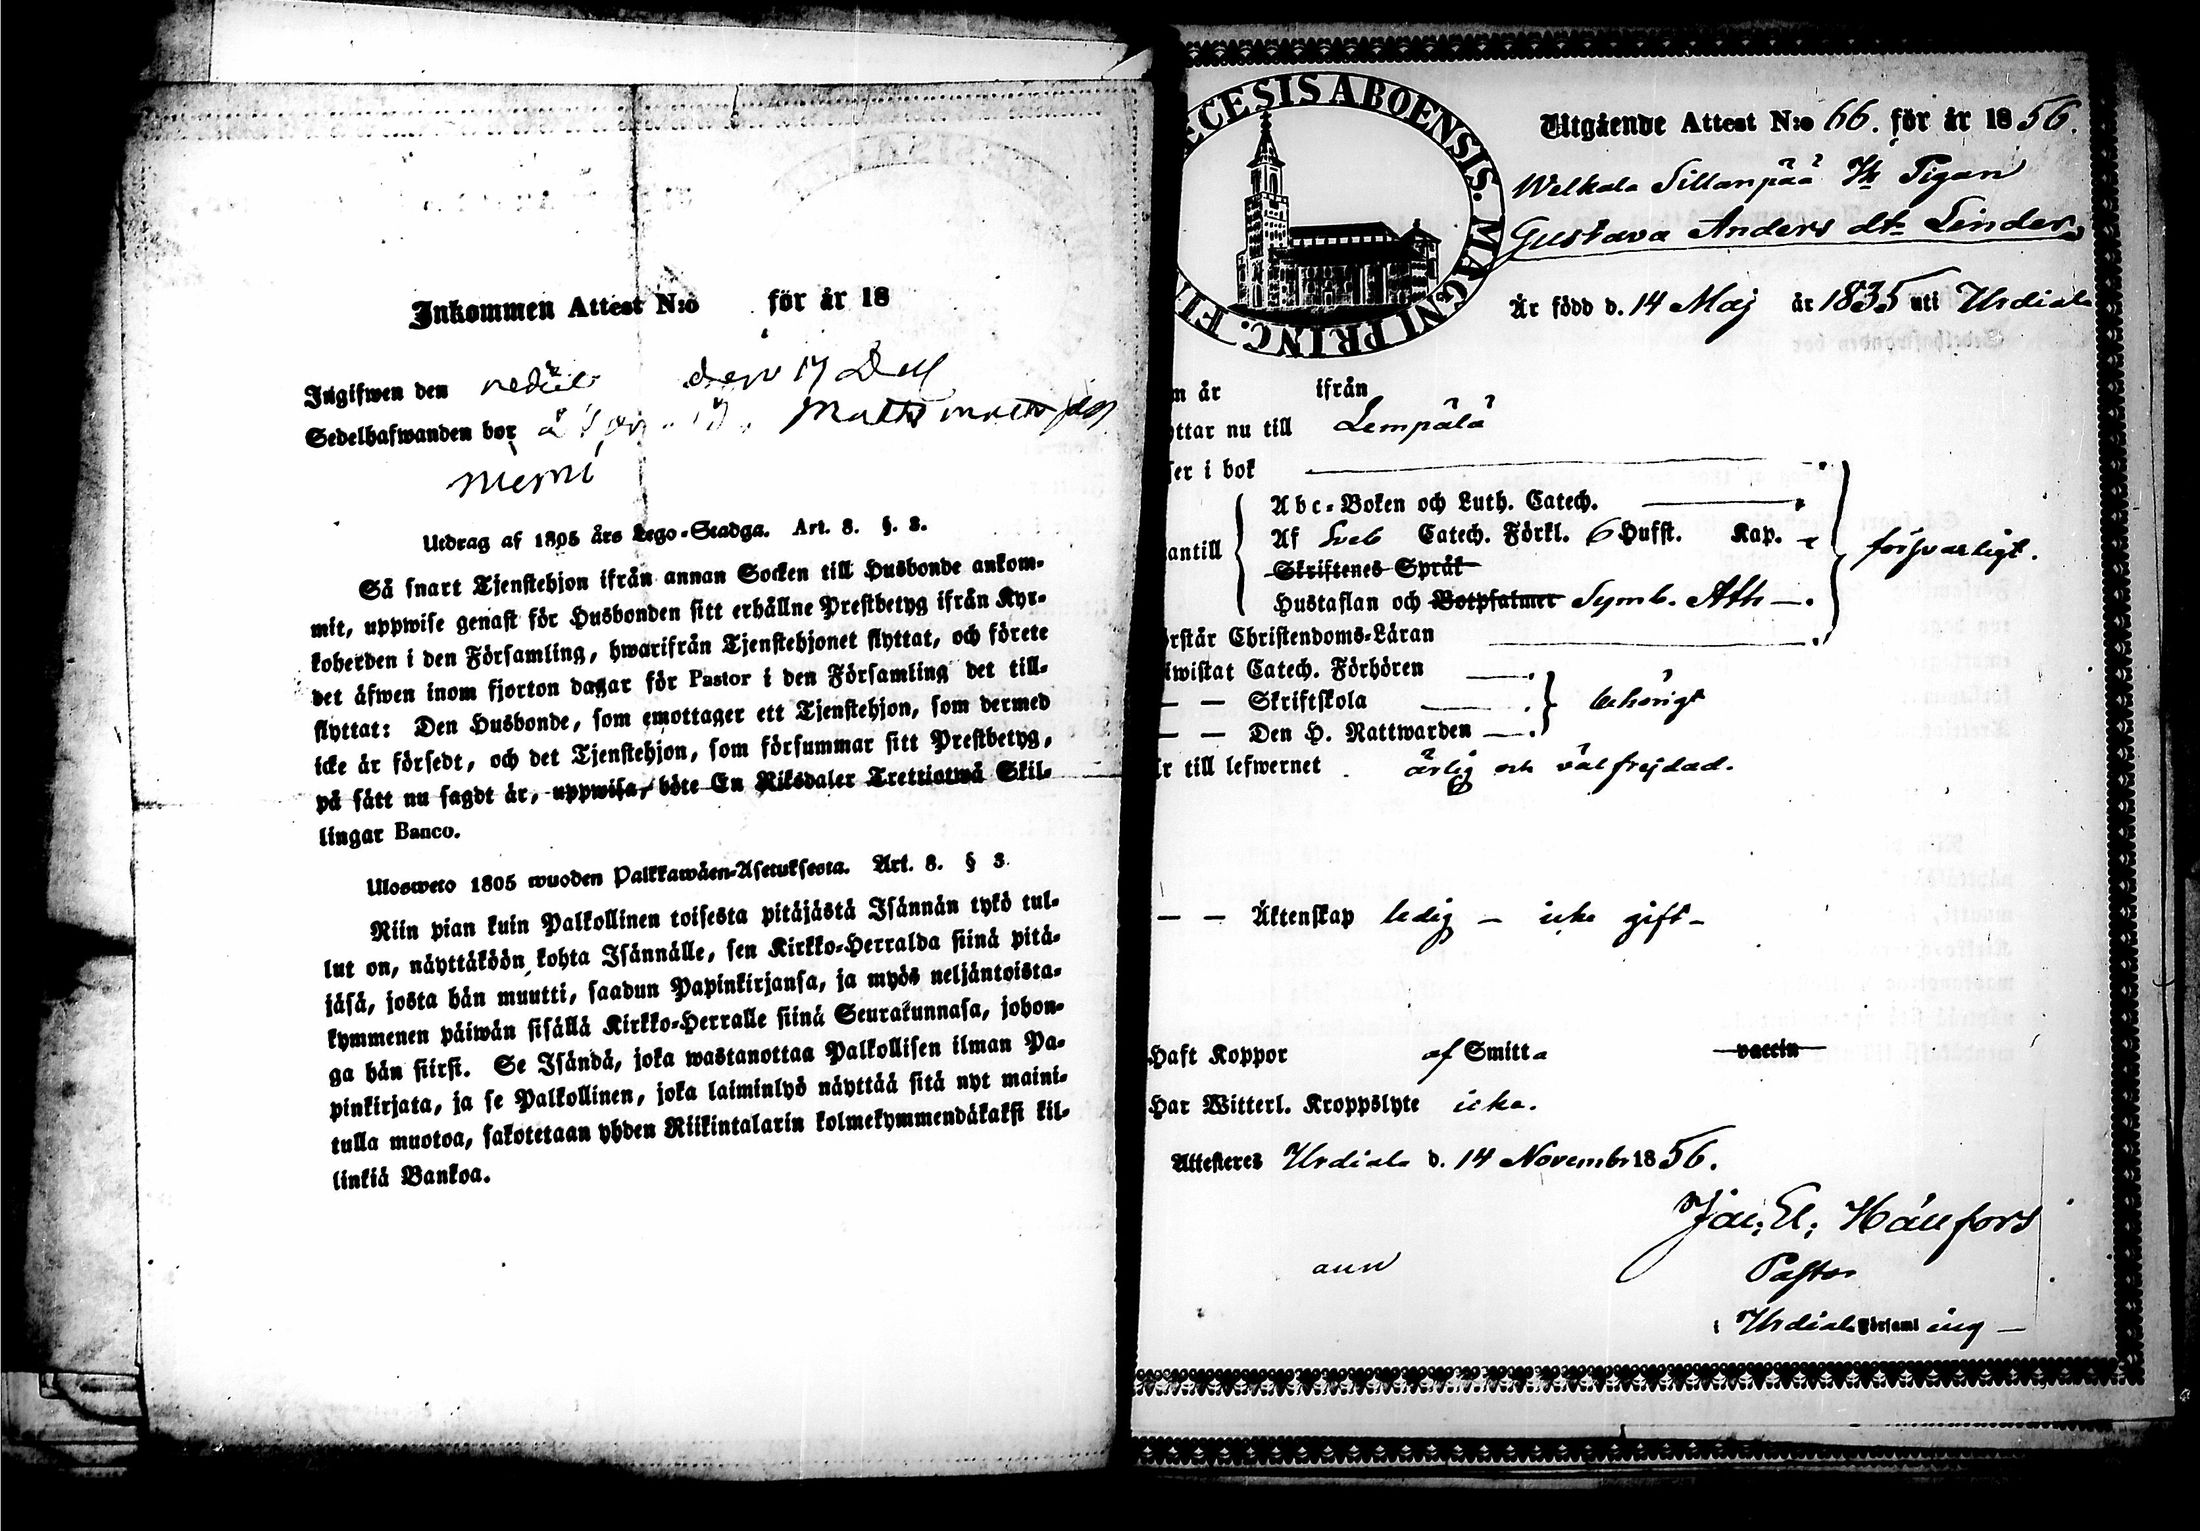 Inkommen Attest N:o för år 18
Ingifwen den den 17 Dec
Sedelhafwanden bor Matts
Niemi
Utdrag af 1805 års Lego-Stadga. Art. 8. §. 3.
Så snart Tjenstehjon ifrån annan Socken till Husbonde ankom-
mit, uppwise genast för Husbonden sitt erhållne Prestbetyg ifrån Kyr-
koherden i den Församling, hwarifrån Tjenstehjonet flyttat, och förete
det äfwen inom fjorton dagar för Pastor i den Församling det till-
flyttat: Den Husbonde, som emottager ett Tjenstehjon, som dermed
icke är försedt, och det Tjenstehjon, som försummar sitt Prestbetyg,
på sätt nu sagdt är, uppwisa, böte En Riksdaler Trettiotwå Skil-
lingar Banco.
Ulosweto 1805 wuoden Palkkawäen-Asetuksesta. Art. 8. § 3
Niin pian kuin Palkollinen toisesta pitäjästä Isännän tykö tul-
lut on, näyttäköön kohta Isännälle, sen Kirkko-Herralda siinä pitä-
jäsä, josta hän muutti, saadun Papinkirjansa, ja myös neljäntoista-
kymmenen päiwän sisällä Kirkko-Herralle siinä Seurakunnasa, johon-
ga hän siirsi. Se Isändä, joka wastanottaa Palkollisen ilman Pa-
pinkirjata, ja se Palkollinen, joka laiminlyö näyttää sitä nyt maini-
tulla muotoa, sakotetaan yhden Riikintalarin kolmekymmendäkaksi kil-
linkiä Bankoa.
ECESIS ABOENSIS. MAGNI PRINC. FIN
Utgående Attest N:o 66. för år 1856.
Welkala Sillanpää Pigan
Gustava Anders dtr Linder
Är född d. 14 Maj år 1835 uti Urdiala
m år ifrån
yttar nu till Lempälä
ser i bok
Abc-Boken och Luth. Catech.
antill Af Sveb Catech. Förkl. 6 Hufst. Kap. försvarligt.
Skriftenes Språk
Hustaflan och Botpsalmer Symb. Ath
örstår Christendoms-Läran
iwistat Catech. Förhören
— — Skriftskola behörigt
— — Den H. Nattwarden
r till lefwernet ärlig och välfrejdad.
— — Äktenskap ledig — icke gift —
Haft Koppor af Smitta vaccin
Har Witterl. Kroppslyte icke.
Attesteres Urdiala d. 14 Novembr 1856.
Jac. El. Hällfors
Pastor
i Urdiala Församling —